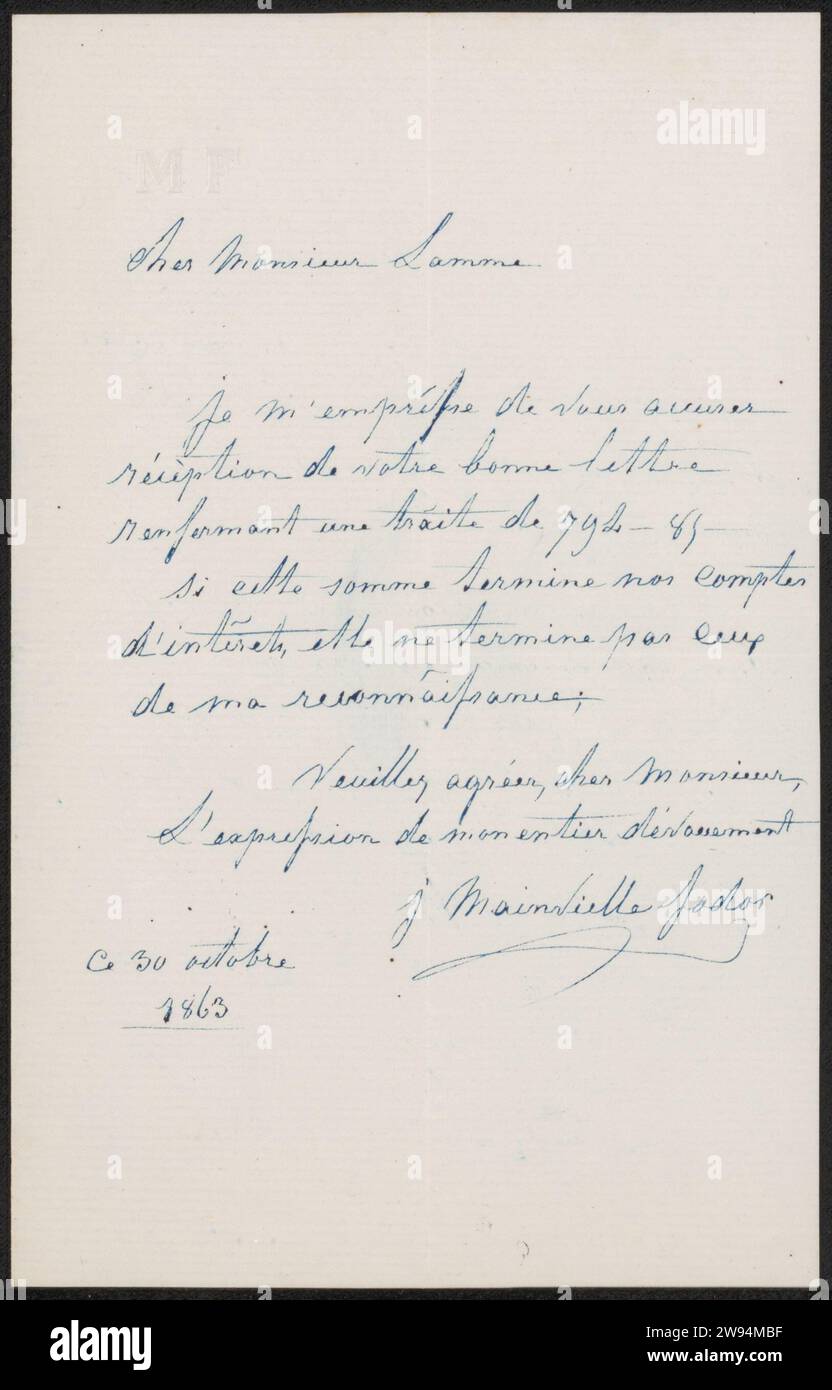 MF
cher Monsieur Lamme
je m'empréſse de vous accuser
récèption de votre bonne lettre
renfermant une traite de 794 – 85 –
si cette somme termine nos comptes
d'intérets, elle ne termine pas ceux
de ma reconnaiſsance;
Veuillez agréer, cher Monsieur,
L'expreſsion de mon entier dévouement
j Mainvielle fodor
ce 30 octobre
1863
alamy
www.alamy.com
Image ID: 2W94MBF